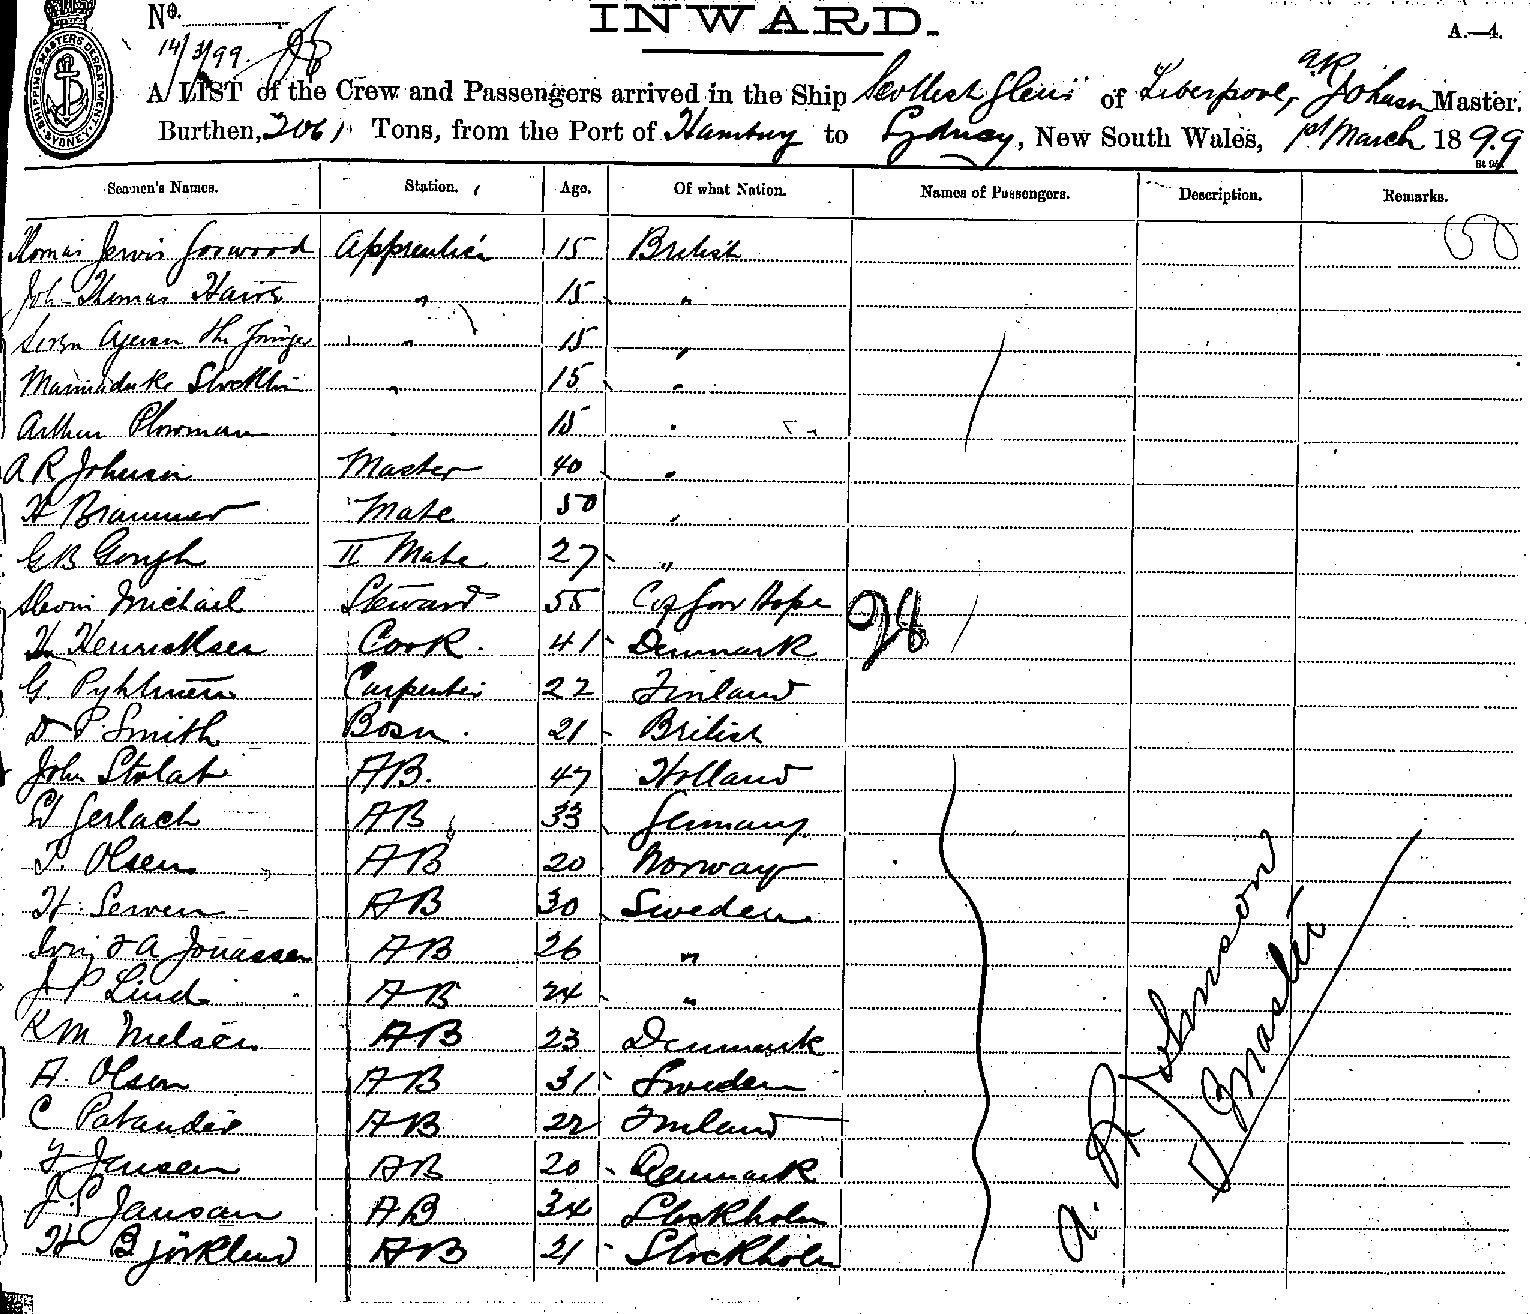 No.
INWARD.
A.—4.
14/3/99
SHIPPING MASTERS DEPARTMENT SYDNEY
A LIST of the Crew and Passengers arrived in the Ship Scottish Glens of Liverpool, A R Johnson Master.
Burthen, 2061 Tons, from the Port of Hamburg to Sydney, New South Wales, 1st March 1899
Seamen's Names. Station. Age. Of what Nation. Names of Passengers. Description. Remarks.
Thomas Jervis Apprentice 15 British
Thomas " 15 "
" 15 "
Marmaduke " 15 "
Arthur Plowman " 15 "
A R Johnson Master 40 "
H Brammer Mate 50 "
G B Gough II Mate 27 "
Michael Steward 55 Hope
28
H Henricksen Cook. 41 Denmark
G. Carpenter 22 Finland
D P. Smith Bosn. 21 British
John AB. 47 Holland
Gerlach AB 33 Germany
T. Olsen AB 20 Norway
H. AB 30 Sweden
A Jonassen AB 26 "
J P Lind AB 24 "
K M Nielsen AB 23 Denmark
A. Olsen AB 31 Sweden
C AB 22 Finland
F Jensen AB 20 Denmark
Jansan AB 34 Stockholm
H Björklund AB 21 Stockholm
A. R Johnson
Master